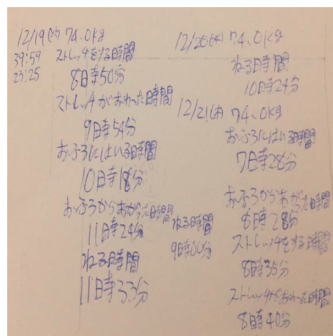 12/19(火) 74.0kg
39:59
23:25
ストレッチをする時間
8時50分
ストレッチがおわった時間
9時54分
おふろにはいる時間
10時18分
おふろからあがった時間
11時24分
ねる時間
11時33分
12/20(水) 74.0kg
ねる時間
10時24分
12/21(木) 74.0kg
おふろにはいる時間
7時28分
おふろからあがった時間
8時28分
ストレッチをする時間
8時35分
ストレッチがおわった時間
8時40分
ねる時間
9時00分